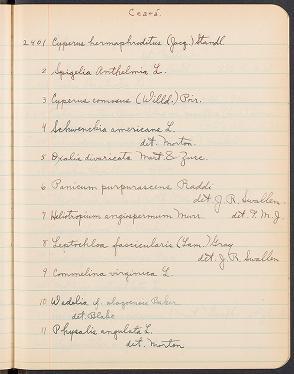 Ceará.
2401 Cyperus hermaphroditus (Jacq.) Standl.
2 Spigelia Anthelmia L.
3 Cyperus comosus (Willd.) Poir.
4 Schwenckia americana L.
det. Morton.
5 Oxalis divaricata Mart. & Zucc.
6 Panicum purpurascens Raddi
det. J. R. Swallen
7 Heliotropium angiospermum Murr. det. I. M. J.
8 Leptochloa fascicularis (Lam.) Gray
det. J. R. Swallen
9 Commelina virginica L.
10 Wedelia cf. alagoensis Baker
det. Blake
11 Physalis angulata L.
det. Morton